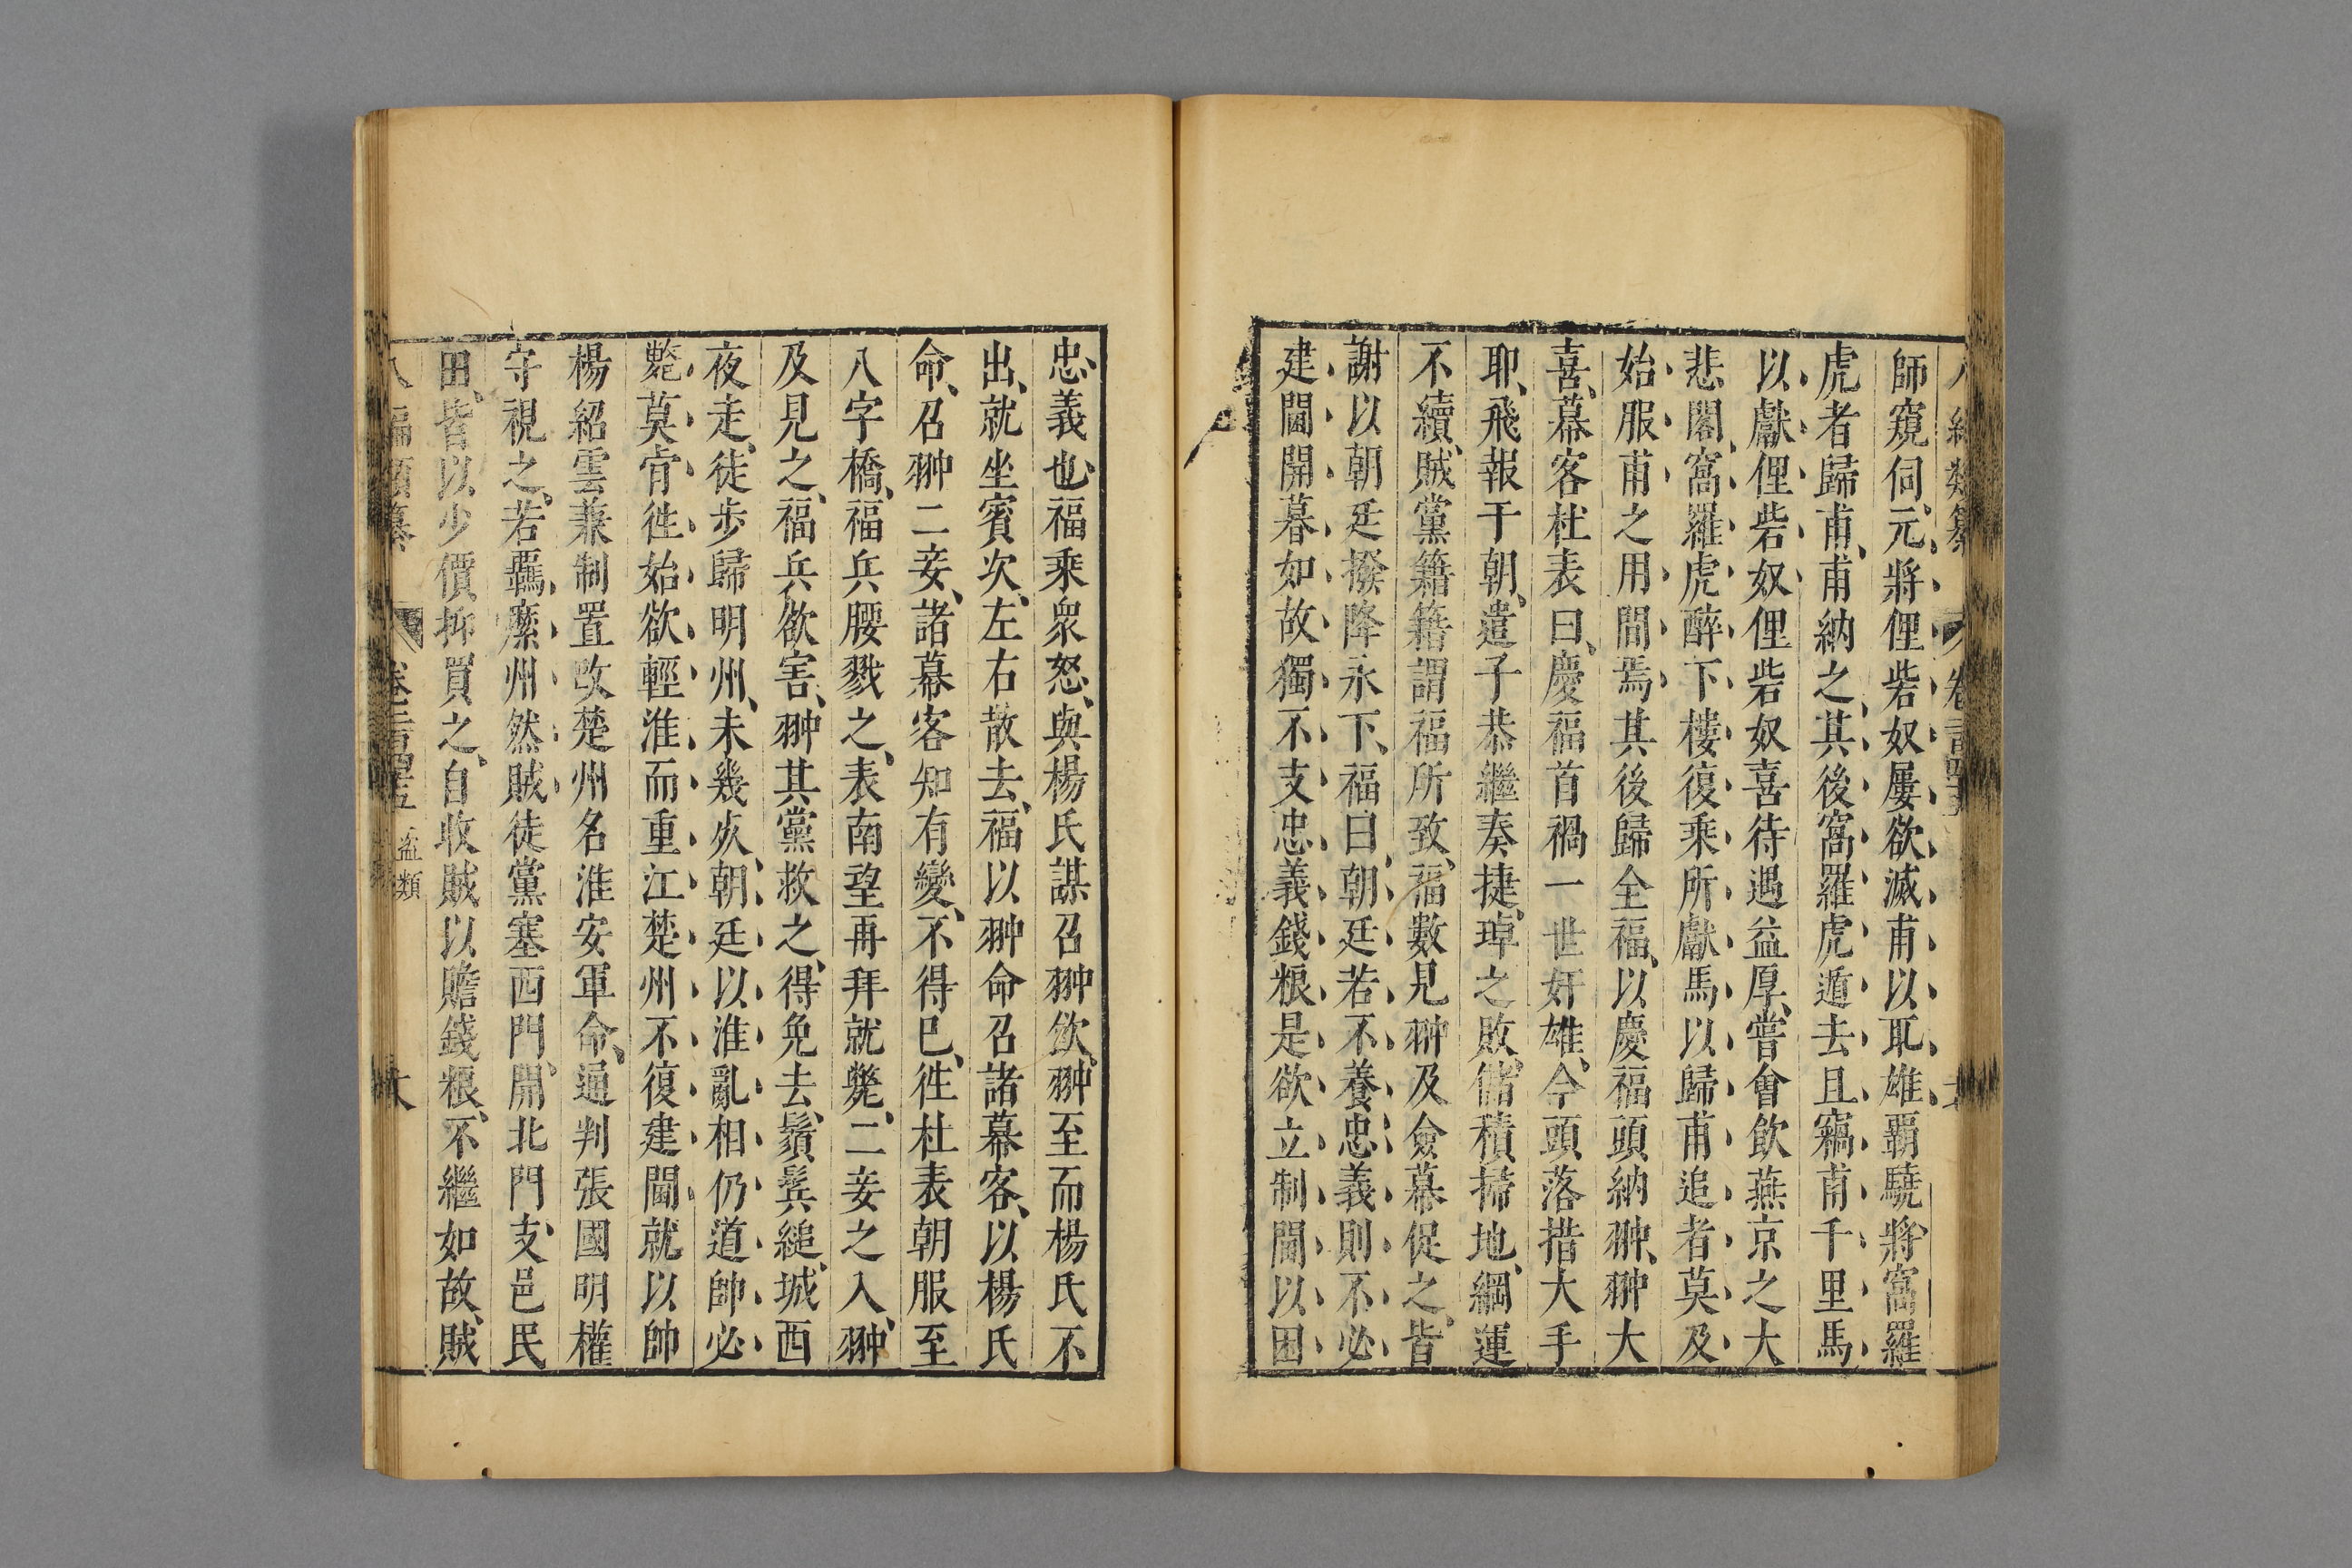 師窺伺、元將俚砦奴屢欲滅甫以耴雄覇驍將窩羅
虎者歸甫、甫納之、其後窩羅虎遁去且竊甫千里馬
以獻俚砦奴俚砦奴喜待遇益厚、嘗會飲燕京之大
悲閣、窩羅虎醉下樓復乘所獻馬以歸甫追者莫及
始服甫之用間焉其後歸全福、以慶福頭納翀、翀大
喜、幕客杜表曰、慶福首禍一世奸雄、今頭落措大手
耶、飛報于朝、遣子恭繼奏捷、琸之敗、儲積掃地、綱運
不續、賊黨籍籍謂福所致、福數見翀及僉幕促之、皆
謝以朝廷撥降永下、福曰、朝廷若不養忠義則不必
建閫開幕如故獨不支忠義錢粮是欲立制閫以困
忠義也福乘衆怒、與楊氏謀召翀飲、翀至而楊氏不
出、就坐賓次、左右散去、福以翀命召諸幕客、以楊氏
命、召翀二妾、諸幕客知有變、不得已、徃杜表朝服至
八字橋、福兵腰戮之、表南望再拜就斃、二妾之入、翀
及見之、福兵欲害、翀其黨救之、得免去、鬚鬂縋城西
夜走、徒步歸明州、未幾死、朝廷以淮亂相仍道帥必
斃莫肯徃始欲輕淮而重江楚州不復建閫就以帥
楊紹雲兼制置改楚州名淮安軍命、通判張國明權
守視之、若羈縻州然賊徒黨塞西門、開北門、支邑民
田、皆以少價抑買之、自收賊以贍錢粮、不繼如故、賊
八編類纂 卷二百四十五 盜類